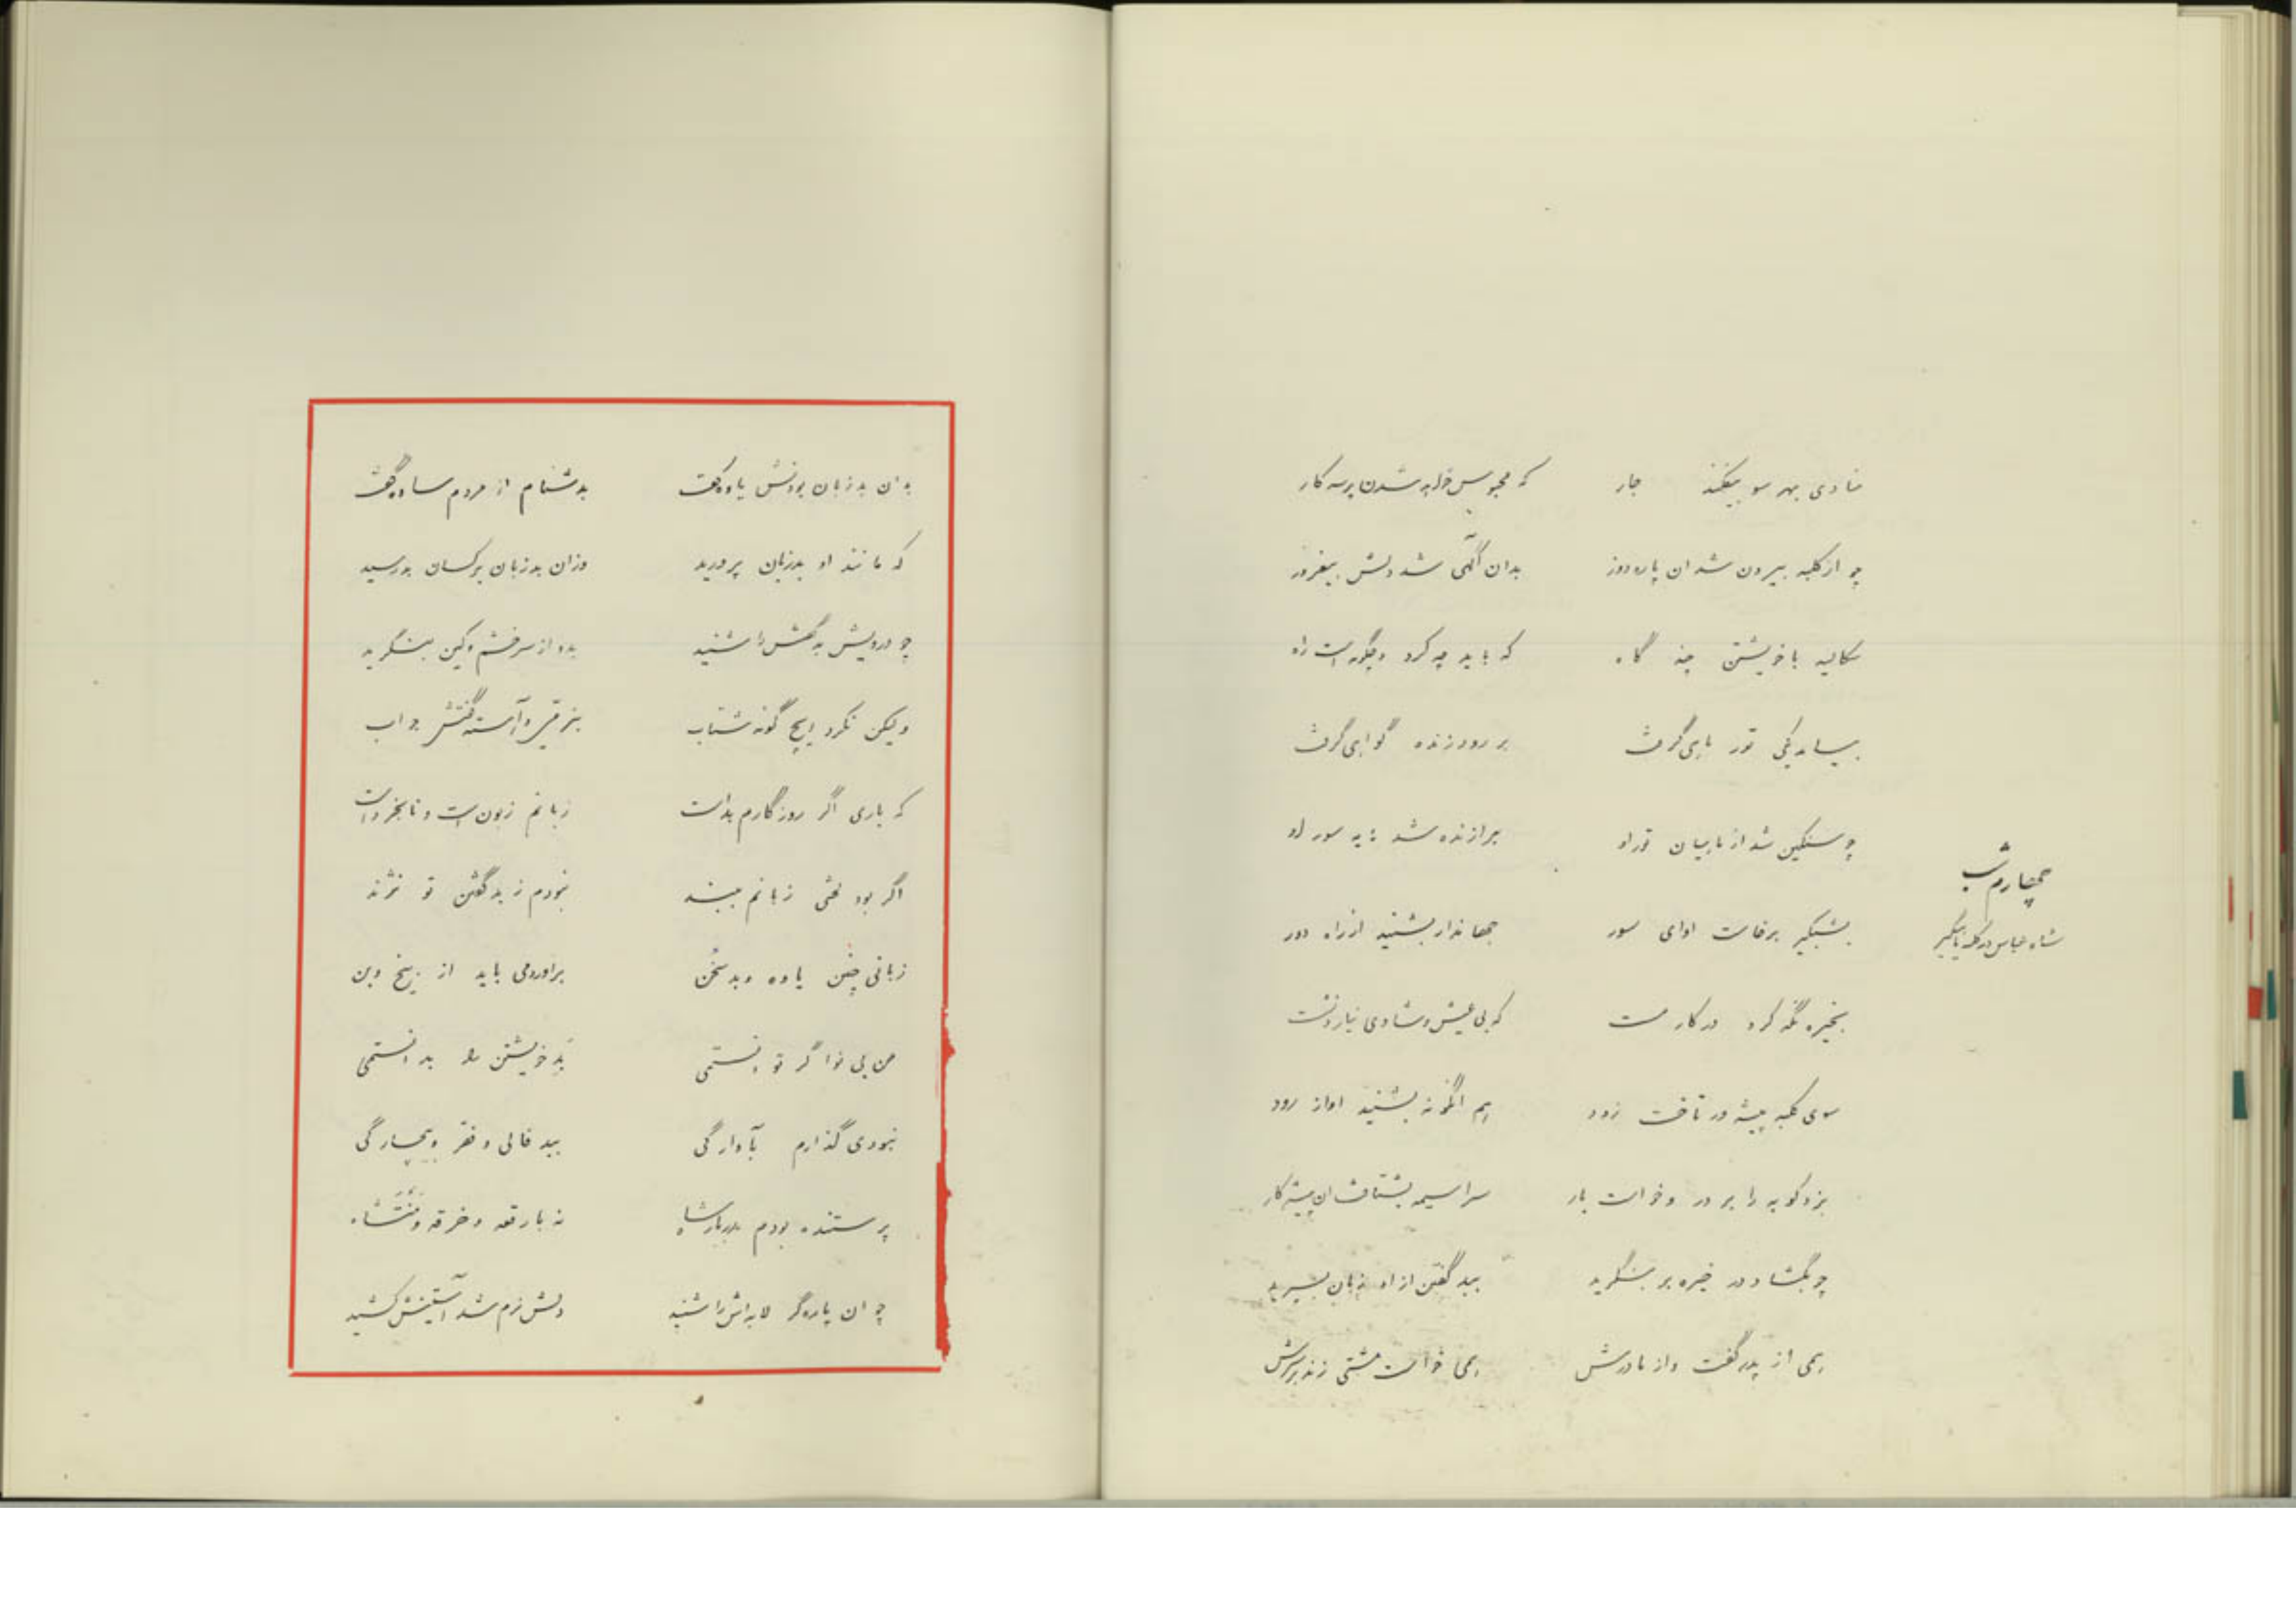 منادی بهر سو بیفکند جار که محبوس خواهد شدن پرسه کار
چو از کلبه بیرون شد ان پاره دوز بدان آگهی شد دلش بیفروز
سکالید با خویشتن چند گاه که باید چه کرد و چگونه است راه
بر رود زنده گواهی گرفت
چو سنگین شد از ماهیان تور او برازنده شد سور او
چهارم شب
شاه عباس در کلبه ماهیگیر
بشبگیر برخاست اوای سور جهاندار بشنید از راه دور
بخیره نگه کرد در کار مست که بی عیش و شادی نیارد نشست
سوی کلبه پیشه ور تاخت زود هم انگونه بشنید اواز رود
بزد کوبه را بر در و خواست بار سراسیمه بشتافت ان پیشه کار
چو بگشاد در خیره بر بنگرید ببد گفتن از او زبان
همی از پدر گفت و از مادرش همی خواست مشتی زند بر سرش
بدان بدزبان بودنش یاوه گفت بدشنام از مردم ساده گفت
که مانند او بدزبان پرورید وزان بدزبان بر کسان بد رسید
چو درویش بد گفتنش را شنید بدو از سر خشم و کین بنگرید
ولیکن نکرد ایچ گونه شتاب بنرمی و آهسته گفتش جواب
که باری اگر روزگارم بد است زبانم زبون است و نابخرد است
اگر بود لختی زبانم ببند نبودم ز بد گفتن تو نژند
زبانی چنین یاوه و بد سخن براوردمی باید از بیخ و بن
من بی نوا گر توانستمی بد خویشتن را بدانستمی
نبودی گذارم بآوارگی ببد فالی و فقر و بیچارگی
پرستنده بودم بدربار شاه نه با رقعه و خرقه و منتشاه
چو ان پاره گر لابه اش را شنید دلش نرم شد آستینش کشید